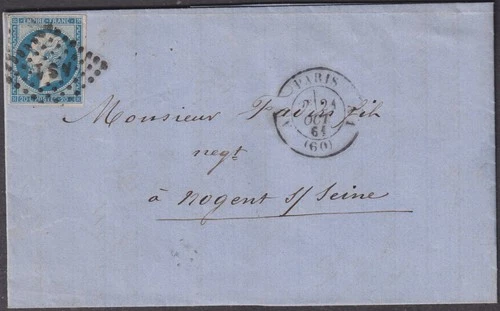 EMPIRE FRANC
PARIS
21
OCT
61
(60)
Monsieur fils
negt
à Nogent s/ Seine